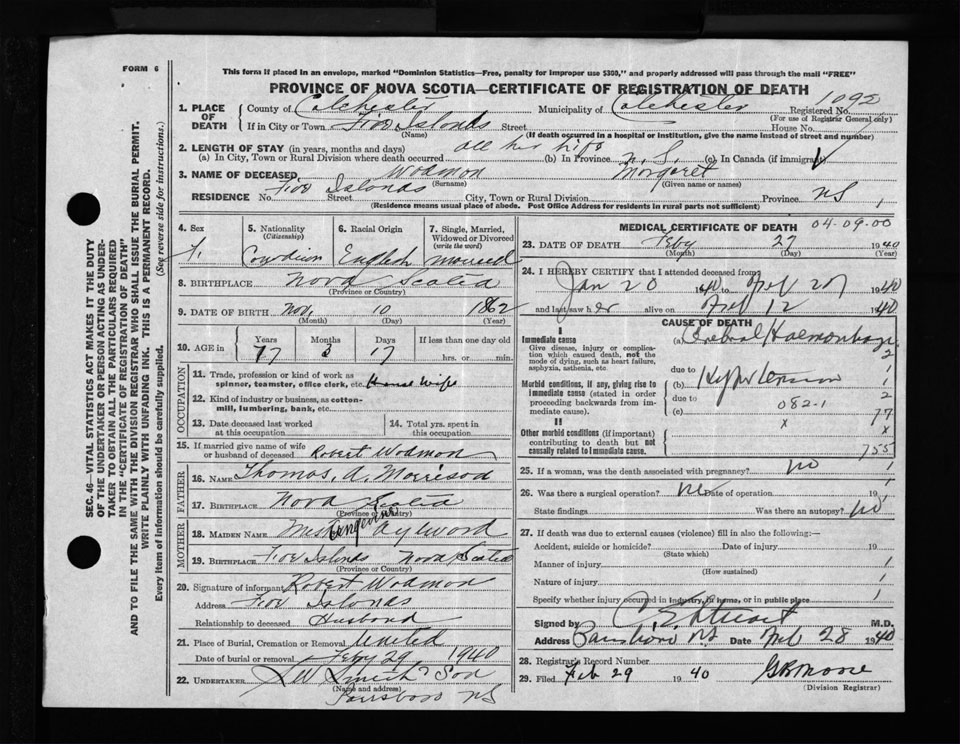 FORM 6
This form if placed in an envelope, marked "Dominion Statistics—Free, penalty for improper use $300," and properly addressed will pass through the mail "FREE"
PROVINCE OF NOVA SCOTIA—CERTIFICATE OF REGISTRATION OF DEATH
1. PLACE OF DEATH County of Colchester Municipality of Colchester Registered No. 1092
(For use of Registrar General only)
If in City or Town Five Islands Street House No.
(Name) (If death occurred in a hospital or institution, give the name instead of street and number)
2. LENGTH OF STAY (in years, months and days) all her life
(a) In City, Town or Rural Division where death occurred (b) In Province N. S. (c) In Canada (if immigrant)
3. NAME OF DECEASED Wodmon Margaret
(Surname) (Given name or names)
RESIDENCE No. Five Islonds Street City, Town or Rural Division Province NS
(Residence means usual place of abode. Post Office Address for residents in rural parts not sufficient)
4. Sex F.
5. Nationality (Citizenship) Canadian
6. Racial Origin English
7. Single, Married, Widowed or Divorced (write the word) Married
8. BIRTHPLACE Nova Scotia
(Province or Country)
9. DATE OF BIRTH Nov. 10 1862
(Month) (Day) (Year)
10. AGE in Years 77 Months 3 Days 17 If less than one day old hrs. or min.
OCCUPATION
11. Trade, profession or kind of work as spinner, teamster, office clerk, etc. House Wife
12. Kind of industry or business, as cotton-mill, lumbering, bank, etc.
13. Date deceased last worked at this occupation
14. Total yrs. spent in this occupation
15. If married give name of wife or husband of deceased Robert Wodmon
FATHER
16. NAME Thomas. A. Morrison
17. BIRTHPLACE Nova Scotia
(Province or Country)
MOTHER
18. MAIDEN NAME Aylword
19. BIRTHPLACE Five Islonds Nova Scotia
(Province or Country)
20. Signature of informant Robert Wodmon
Address Five Islonds
Relationship to deceased Husbond
21. Place of Burial, Cremation or Removal United
Date of burial or removal Feby 29 1940
22. UNDERTAKER Smith & Son
(Name and address)
Parrsboro NS
MEDICAL CERTIFICATE OF DEATH 04-09-00
23. DATE OF DEATH Feby 27 1940
(Month) (Day) (Year)
24. I HEREBY CERTIFY that I attended deceased from
Jan 20 1940 to Feb 27 1940
and last saw her alive on Feb 1940
CAUSE OF DEATH
I
Immediate cause
Give disease, injury or complication which caused death, not the mode of dying, such as heart failure, asphyxia, asthenia, etc.
(a) Cerebral Haemorrhage
due to
Morbid conditions, if any, giving rise to immediate cause (stated in order proceeding backwards from immediate cause).
(b) Hypertension
due to
(c) 082-1
x
2
1
2
1
77
x
755
II
Other morbid conditions (if important) contributing to death but not causally related to immediate cause.
25. If a woman, was the death associated with pregnancy? No
26. Was there a surgical operation? No Date of operation 19
State findings Was there an autopsy? No
27. If death was due to external causes (violence) fill in also the following:—
Accident, suicide or homicide? Date of injury 19
(State which)
Manner of injury
(How sustained)
Nature of injury
Specify whether injury occurred in industry, in home, or in public place
Signed by M.D.
Address Parrsboro NS Date Feb 28 1940
28. Registrar's Record Number
29. Filed Feb 29 1940 Moore
(Division Registrar)
SEC. 46—VITAL STATISTICS ACT MAKES IT THE DUTY OF THE UNDERTAKER OR PERSON ACTING AS UNDERTAKER TO OBTAIN ALL THE PARTICULARS REQUIRED IN THE "CERTIFICATE OF REGISTRATION OF DEATH" AND TO FILE THE SAME WITH THE DIVISION REGISTRAR WHO SHALL ISSUE THE BURIAL PERMIT.
WRITE PLAINLY WITH UNFADING INK. THIS IS A PERMANENT RECORD.
Every item of information should be carefully supplied. (See reverse side for instructions.)